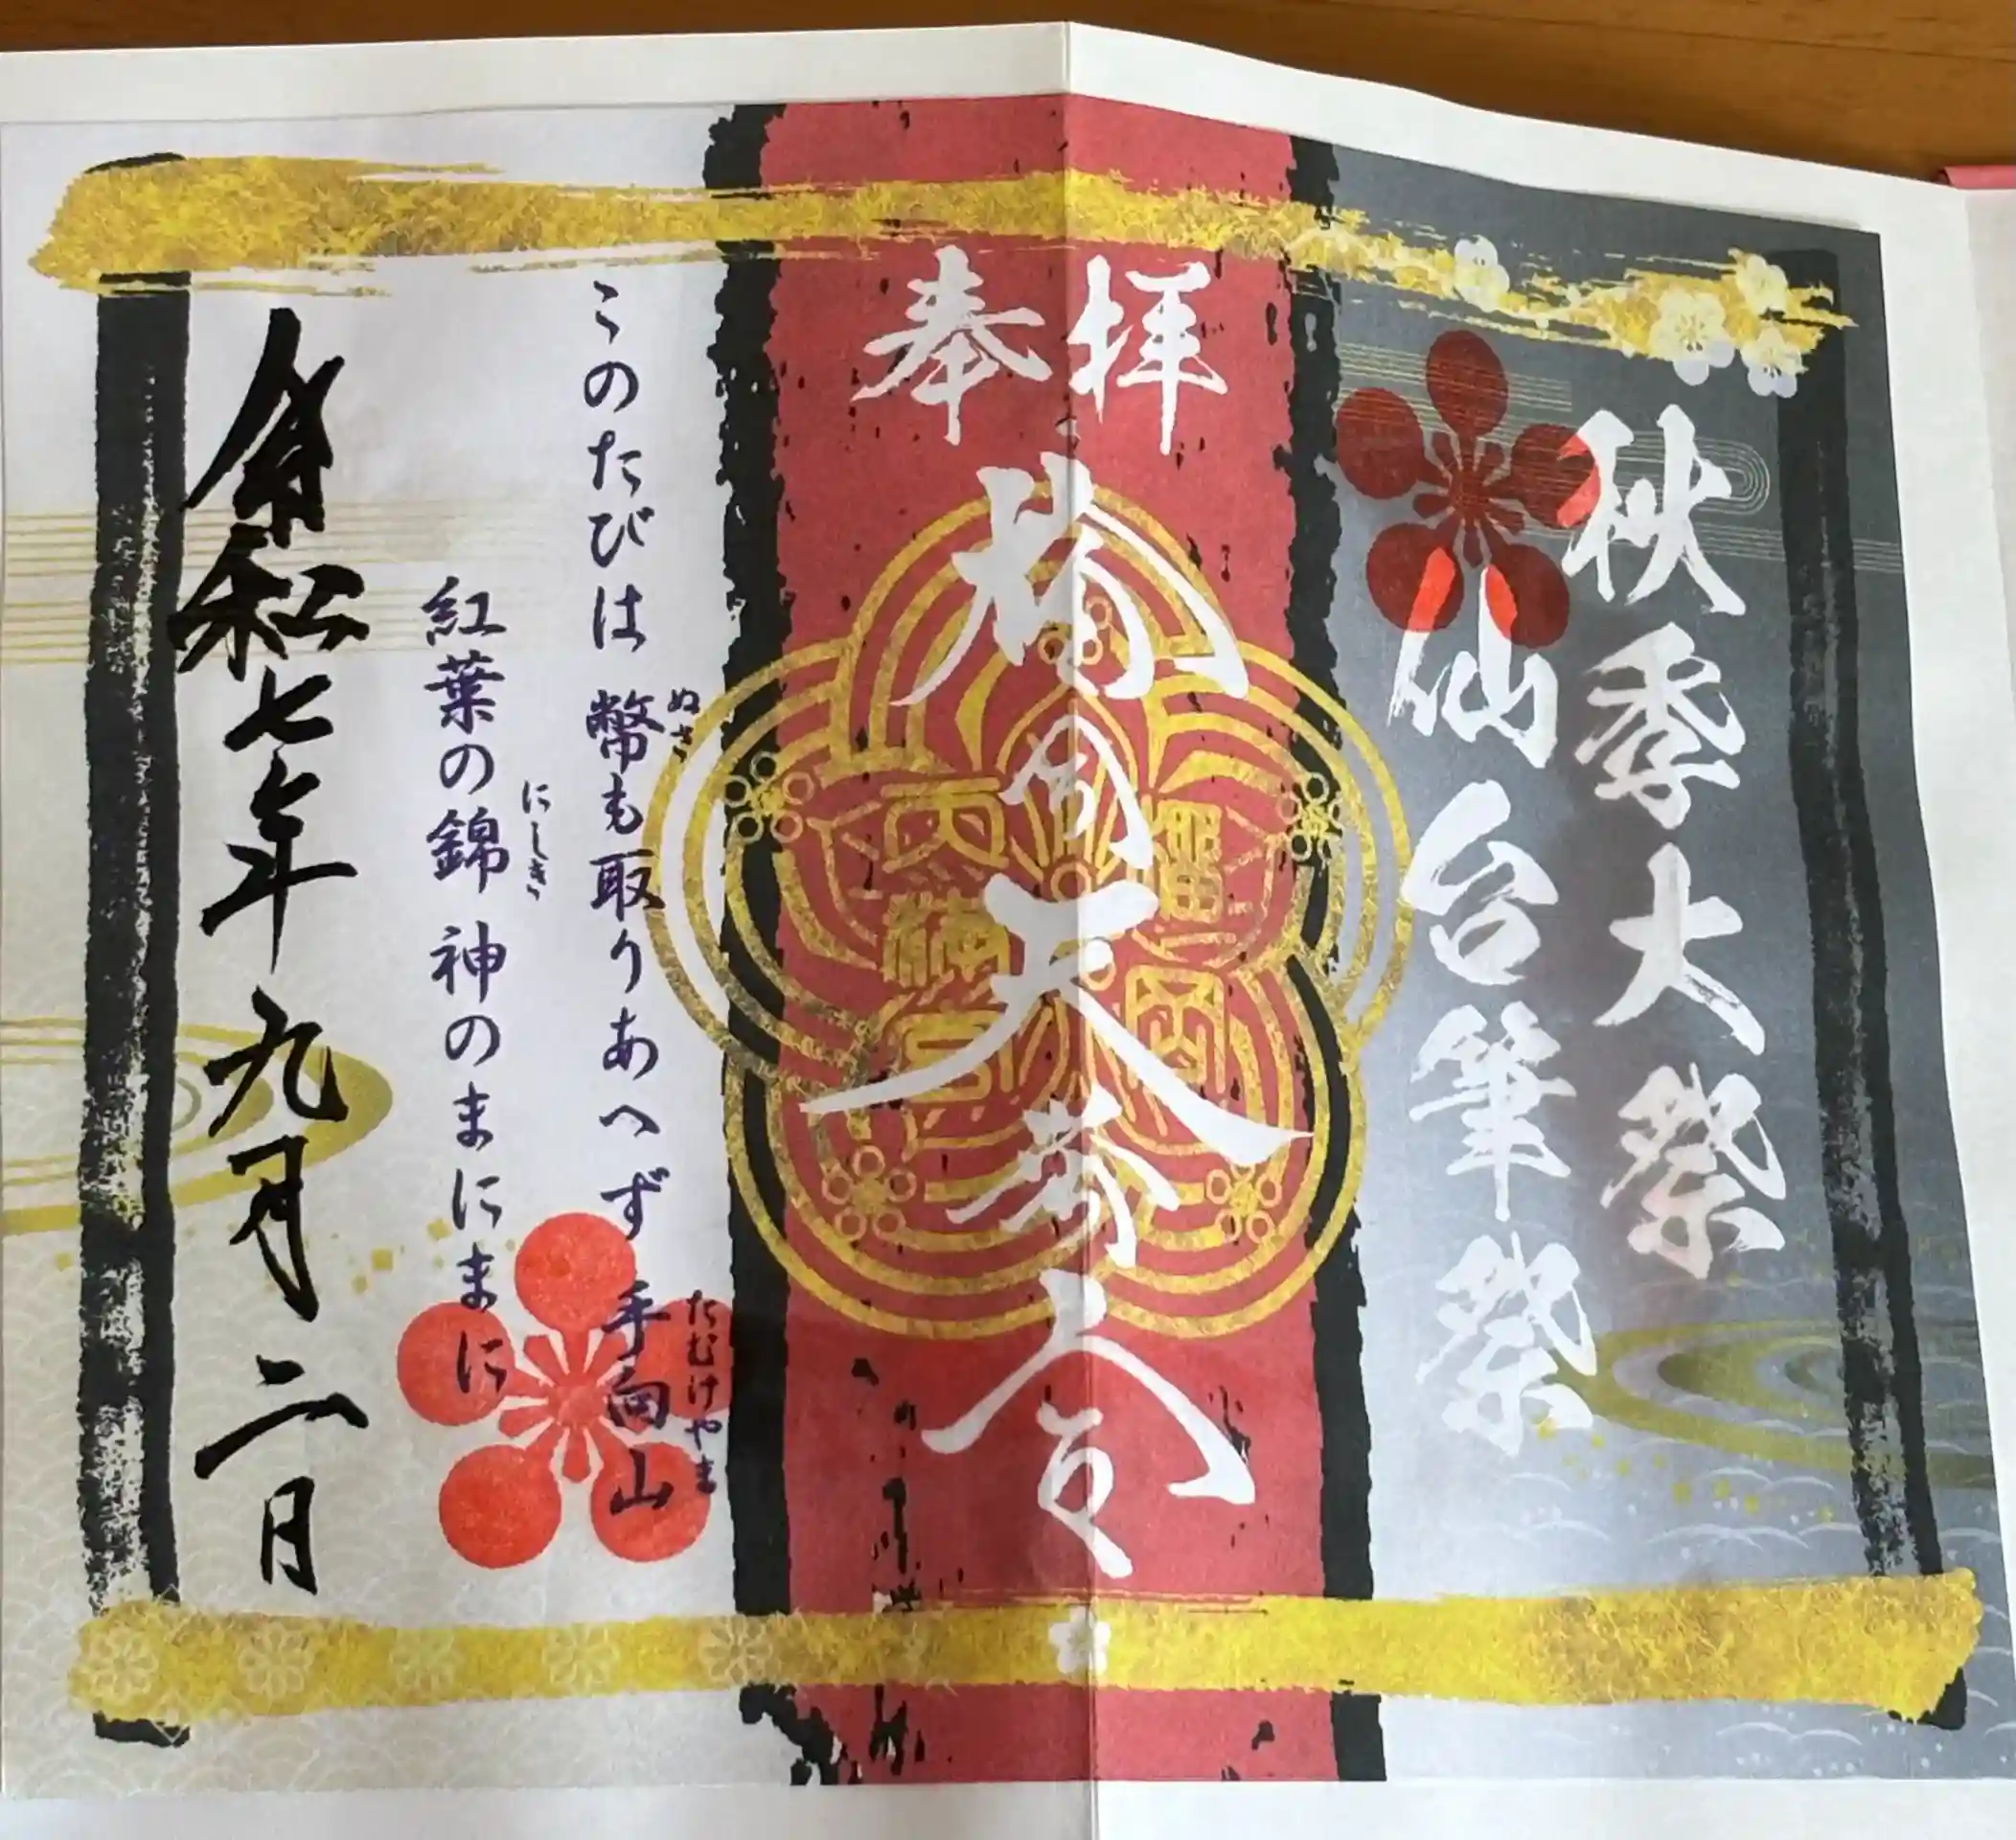 秋季大祭
仙台筆祭
奉拝
榴岡天満宮
榴岡
天満宮
このたびは 幣も取りあへず 手向山
ぬさ
たむけやま
紅葉の錦 神のまにまに
にしき
令和七年九月二日